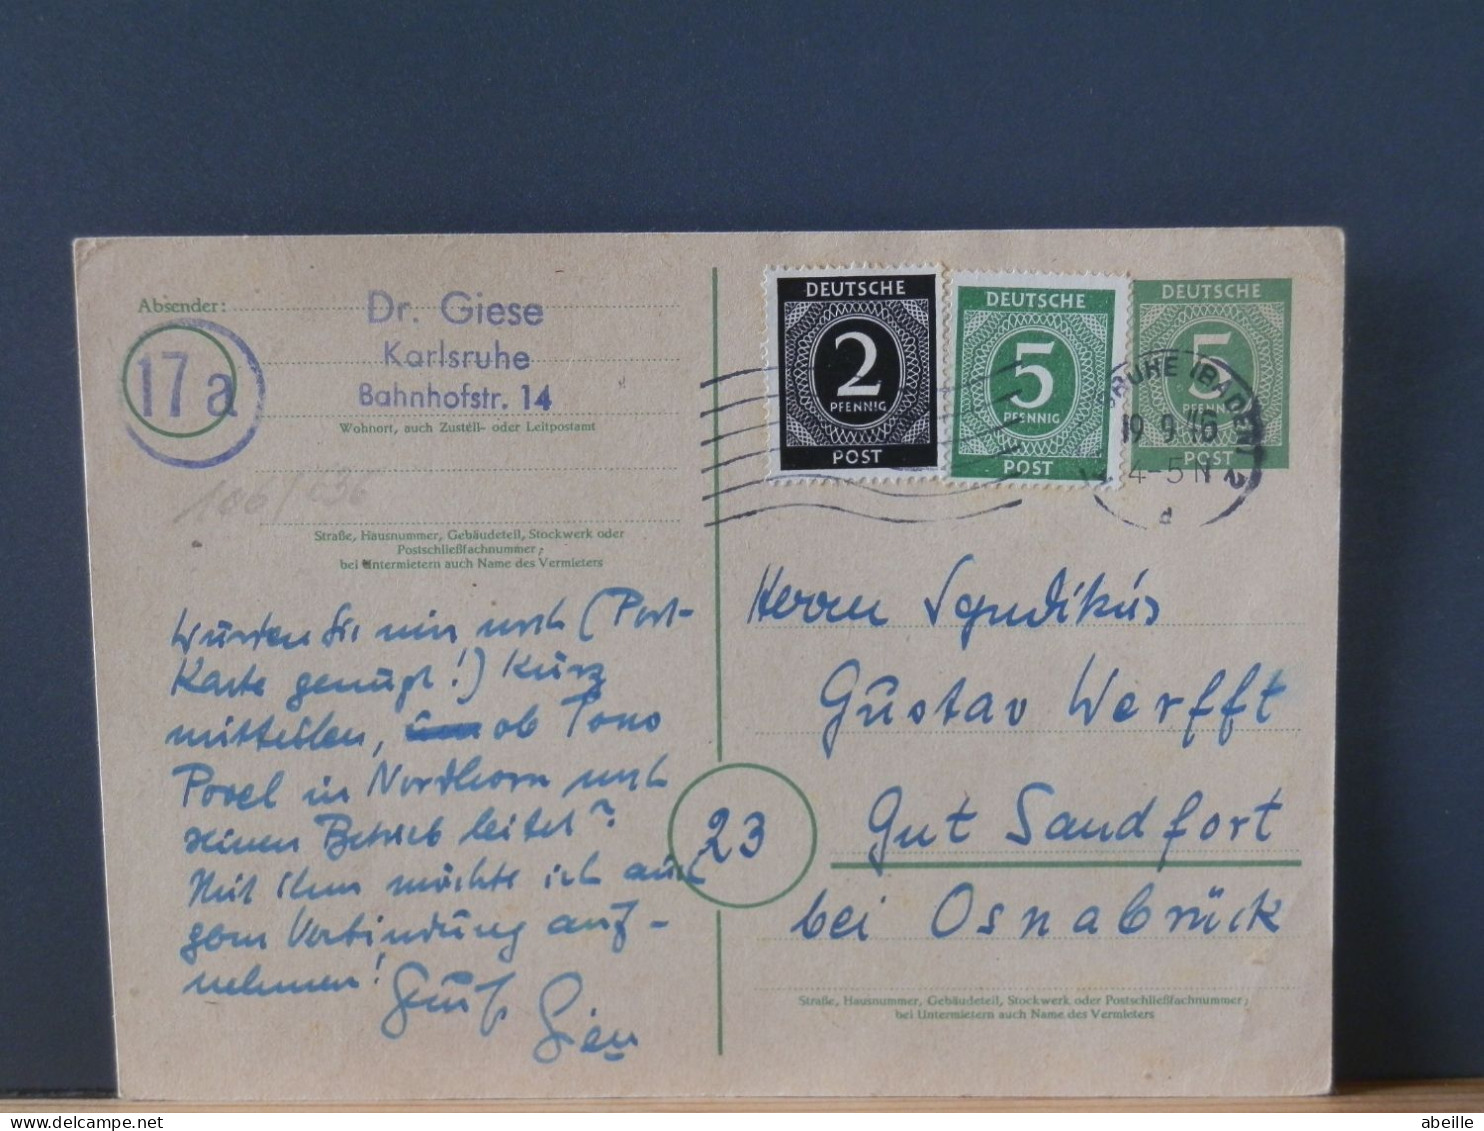 Absender:
Dr. Giese
Karlsruhe
Bahnhofstr. 14
17a
Wohnort, auch Zustell- oder Leitpostamt
106/696
Straße, Hausnummer, Gebäudeteil, Stockwerk oder
Postschließfachnummer;
bei Untermietern auch Name des Vermieters
Würden Sie mir noch (Post-
Karte genügt!) kurz
mitteilen, ob Pono
Povel in Nordhorn noch
seinen Betrieb leitet?
Mit ihm möchte ich auch
gern Verbindung auf-
nehmen!
DEUTSCHE
2
PFENNIG
POST
DEUTSCHE
5
PFENNIG
POST
DEUTSCHE
5
PFENNIG
POST
RUHE (BADEN) 2
19 9 46
4-5 N
d
Herrn Syndikus
Gustav Werfft
23
Gut Sandfort
bei Osnabrück
Straße, Hausnummer, Gebäudeteil, Stockwerk oder Postschließfachnummer;
bei Untermietern auch Name des Vermieters
abeille